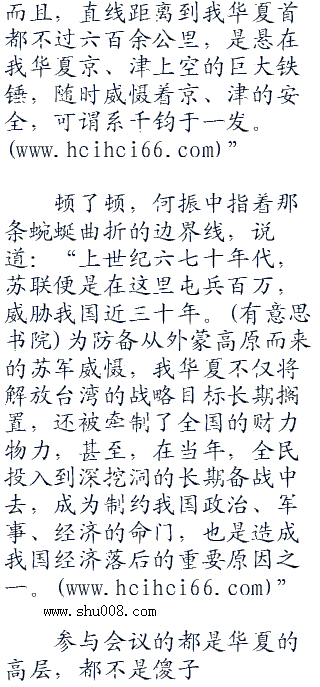 而且，直线距离到我华夏首
都不过六百余公里，是悬在
我华夏京、津上空的巨大铁
锤，随时威慑着京、津的安
全，可谓系千钧于一发。
(www.hcihci66.com)”
顿了顿，何振中指着那
条蜿蜒曲折的边界线，说
道：“上世纪六七十年代，
苏联便是在这里屯兵百万，
威胁我国近三十年。(有意思
书院)为防备从外蒙高原而来
的苏军威慑，我华夏不仅将
解放台湾的战略目标长期搁
置，还被牵制了全国的财力
物力，甚至，在当年，全民
投入到深挖洞的长期备战中
去，成为制约我国政治、军
事、经济的命门，也是造成
我国经济落后的重要原因之
一。(www.hcihci66.com)”
www.shu008.com
参与会议的都是华夏的
高层，都不是傻子